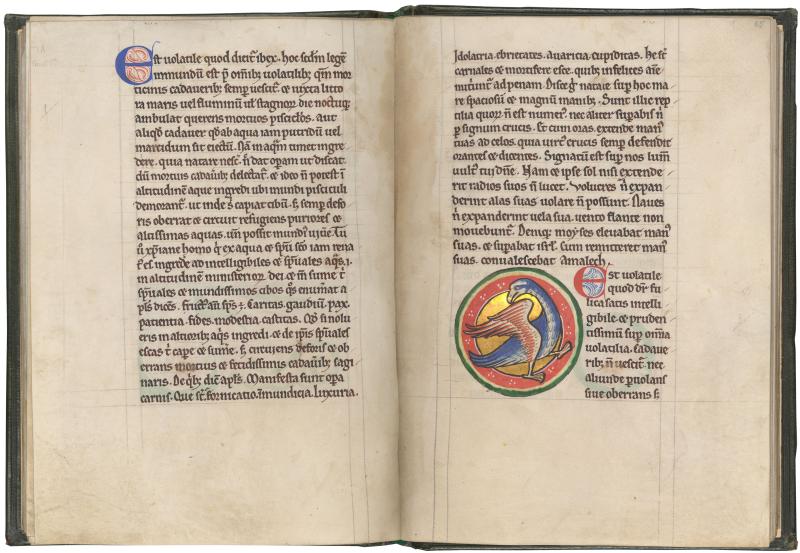 Est uolatile quod dicit᷑ ibex. hoc scd̅m legē
inmundū est p̄ omnib; uolatilib; qm̄ mor
ticinis cadauerib; semp̱ uescit᷑. ⁊ iuxta litto
ra maris uel fluminū uł stagnoꝝ die noctuq;
ambulat querens mortuos pisciclos. aut
aliqd̓ cadauer qd̓ ab aqua iam putridū uel
marcidum sit eiectū. Nā in aqm̄ timet ingre
dere. quia natare nesc̓. n̄ dat opam ut discat.
dū mortuis cadauīb; delectat᷑. ⁊ ideo n̄ potest ī
altitudinē aque ingredi ubi mundi pisciculi
demorant᷑. ut inde s̓ capiat cibū. s; semp̱ defo
ris oberrat ⁊ circuit refugiens puriores ⁊
altissimas aquas. un̄ possit mundus uiue. Tu
ū xp̄iane homo q̓ ex aqua ⁊ sp̄u sc̄o iam rena
t᷑ es. ingrede ad intelligibiles ⁊ sp̄uales aq̓s. ī.
in altitudinē ministerioꝝ dei ⁊ īn sume t᷑
sp̄uales ⁊ mundissimos cibos q̓s enumat a
pl̄s dicēs. Fruct᷑ aut̄ sp̄s ē. Caritas. gaudiū. pax.
patientia. fides. modestia. castitas. Qd̓ si nolu
eris in altiorib; aq̓s ingredi. ⁊ de ip̄is sp̄uales
escas t᷑ cape ⁊ sume. s; circuiens deforis ⁊ ob
errans mortuis ⁊ fetidissimis cadauīb; sagi
naris. De q̓b; dic̄ apl̄s. Manifesta sunt opa
carnis. Que st̄ fornicatio. inmundicia. luxuria.
Idolatria. ebrietates. auaricia. cupiditas. He st̄
carnales ⁊ mortifere esce. quib; infelices aīe
nut̓unt᷑ ad penam. Disce q̓ natare sup̱ hoc ma
re spaciosū ⁊ magnū manib;. Sunt illic rep
tilia quoꝝ n̄ est numer᷑. nec aliter sup̱abis n̄
p̱ signum crucis. Et cum oras. extende man᷑
tuas ad celos. quia uirt᷑ crucis semp̱ defendit
orantes ⁊ dicentes. Signatū est sup̱ nos lum̄
uult᷑ tui dn̄e. Nam ⁊ ipse sol nisi extende
rit radios suos n̄ lucet. Volucres n̄ expan
derint alas suas uolare n̄ possunt. Naues
n̄ expanderint uela sua. uento flante non
mouebunt᷑. Deniq; moyses eleuabat man᷑
suas. ⁊ sup̱abat isrl̄. Cum remitteret man᷑
suas. conualescebat Amalech.
Est uolatile
quod dr̄ fu
lica satis intelli
gibile. ⁊ pruden
tissimū sup̱ om̄ia
uolatilia. Cadaue
rib; n̄ uescit᷑. nec
aliunde p̱uolans
siue oberrans s;